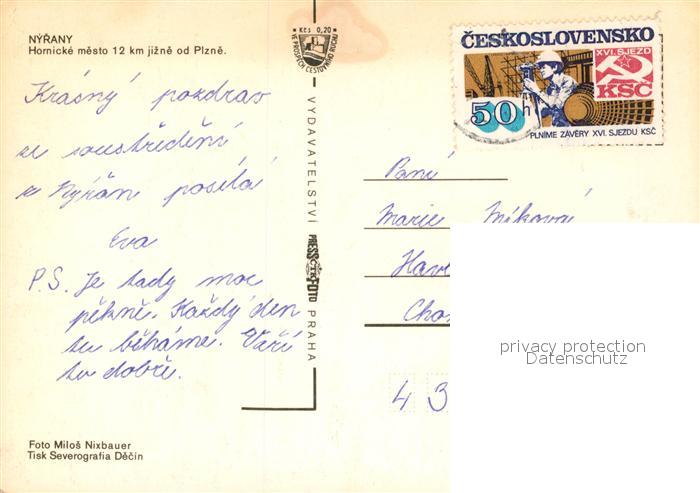 NÝŘANY
Hornické město 12 km jižně od Plzně.
Krásný pozdrav
ze soustředění
z Nýřan posílá
Eva
P.S. Je tady moc
pěkně. Každý den
tu běháme. Vaří
tu dobře.
Foto Miloš Nixbauer
Tisk Severografia Děčín
Kčs 0,20
VE PROSPĚCH CESTOVNÍHO RUCHU
VYDAVATELSTVÍ PRESSFOTO PRAHA
ČTK
ČESKOSLOVENSKO
XVI. SJEZD
KSČ
50 h
PLNÍME ZÁVĚRY XVI. SJEZDU KSČ
Paní
Marie Míková
Havl
Cho
43
privacy protection
Datenschutz